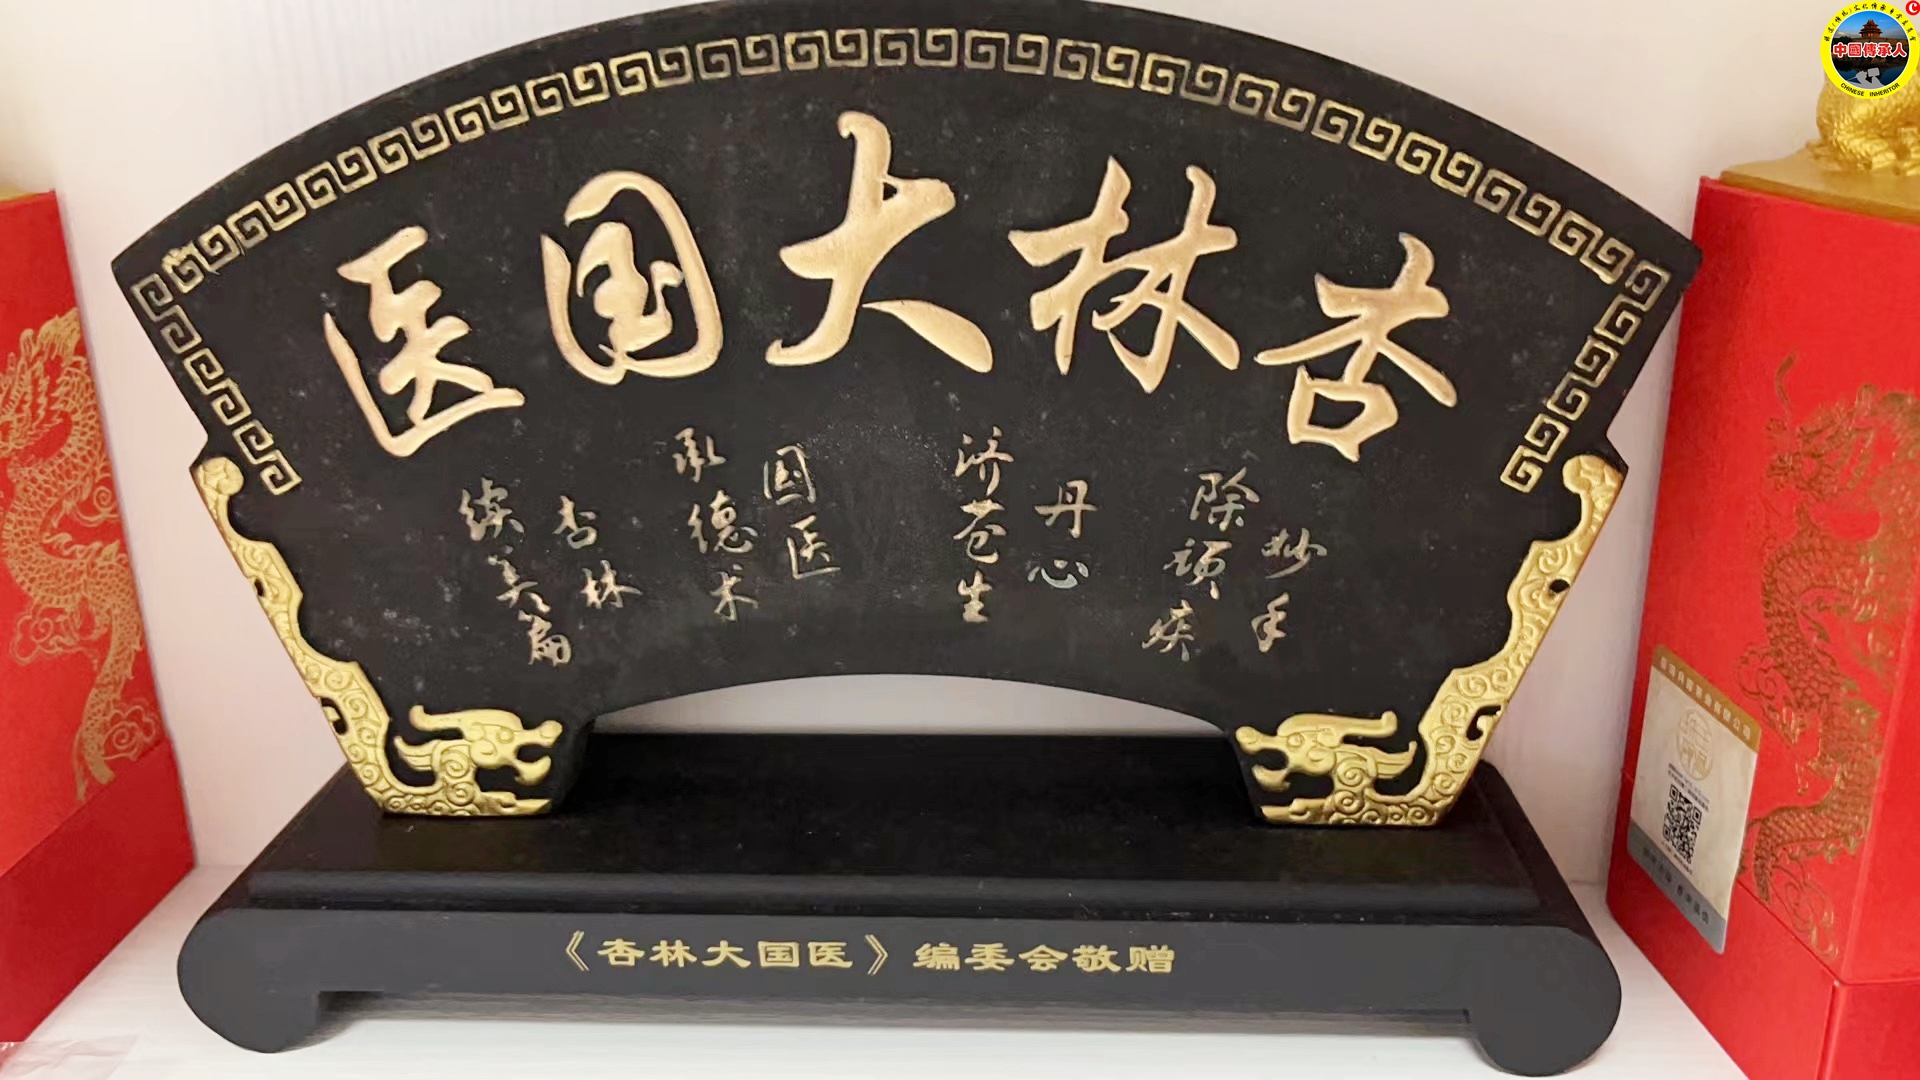 杏林大国医
妙手
除顽疾
丹心
济苍生
国医
承德术
杏林
续美篇
《杏林大国医》编委会敬赠
中國傳承人
CHINESE INHERITOR